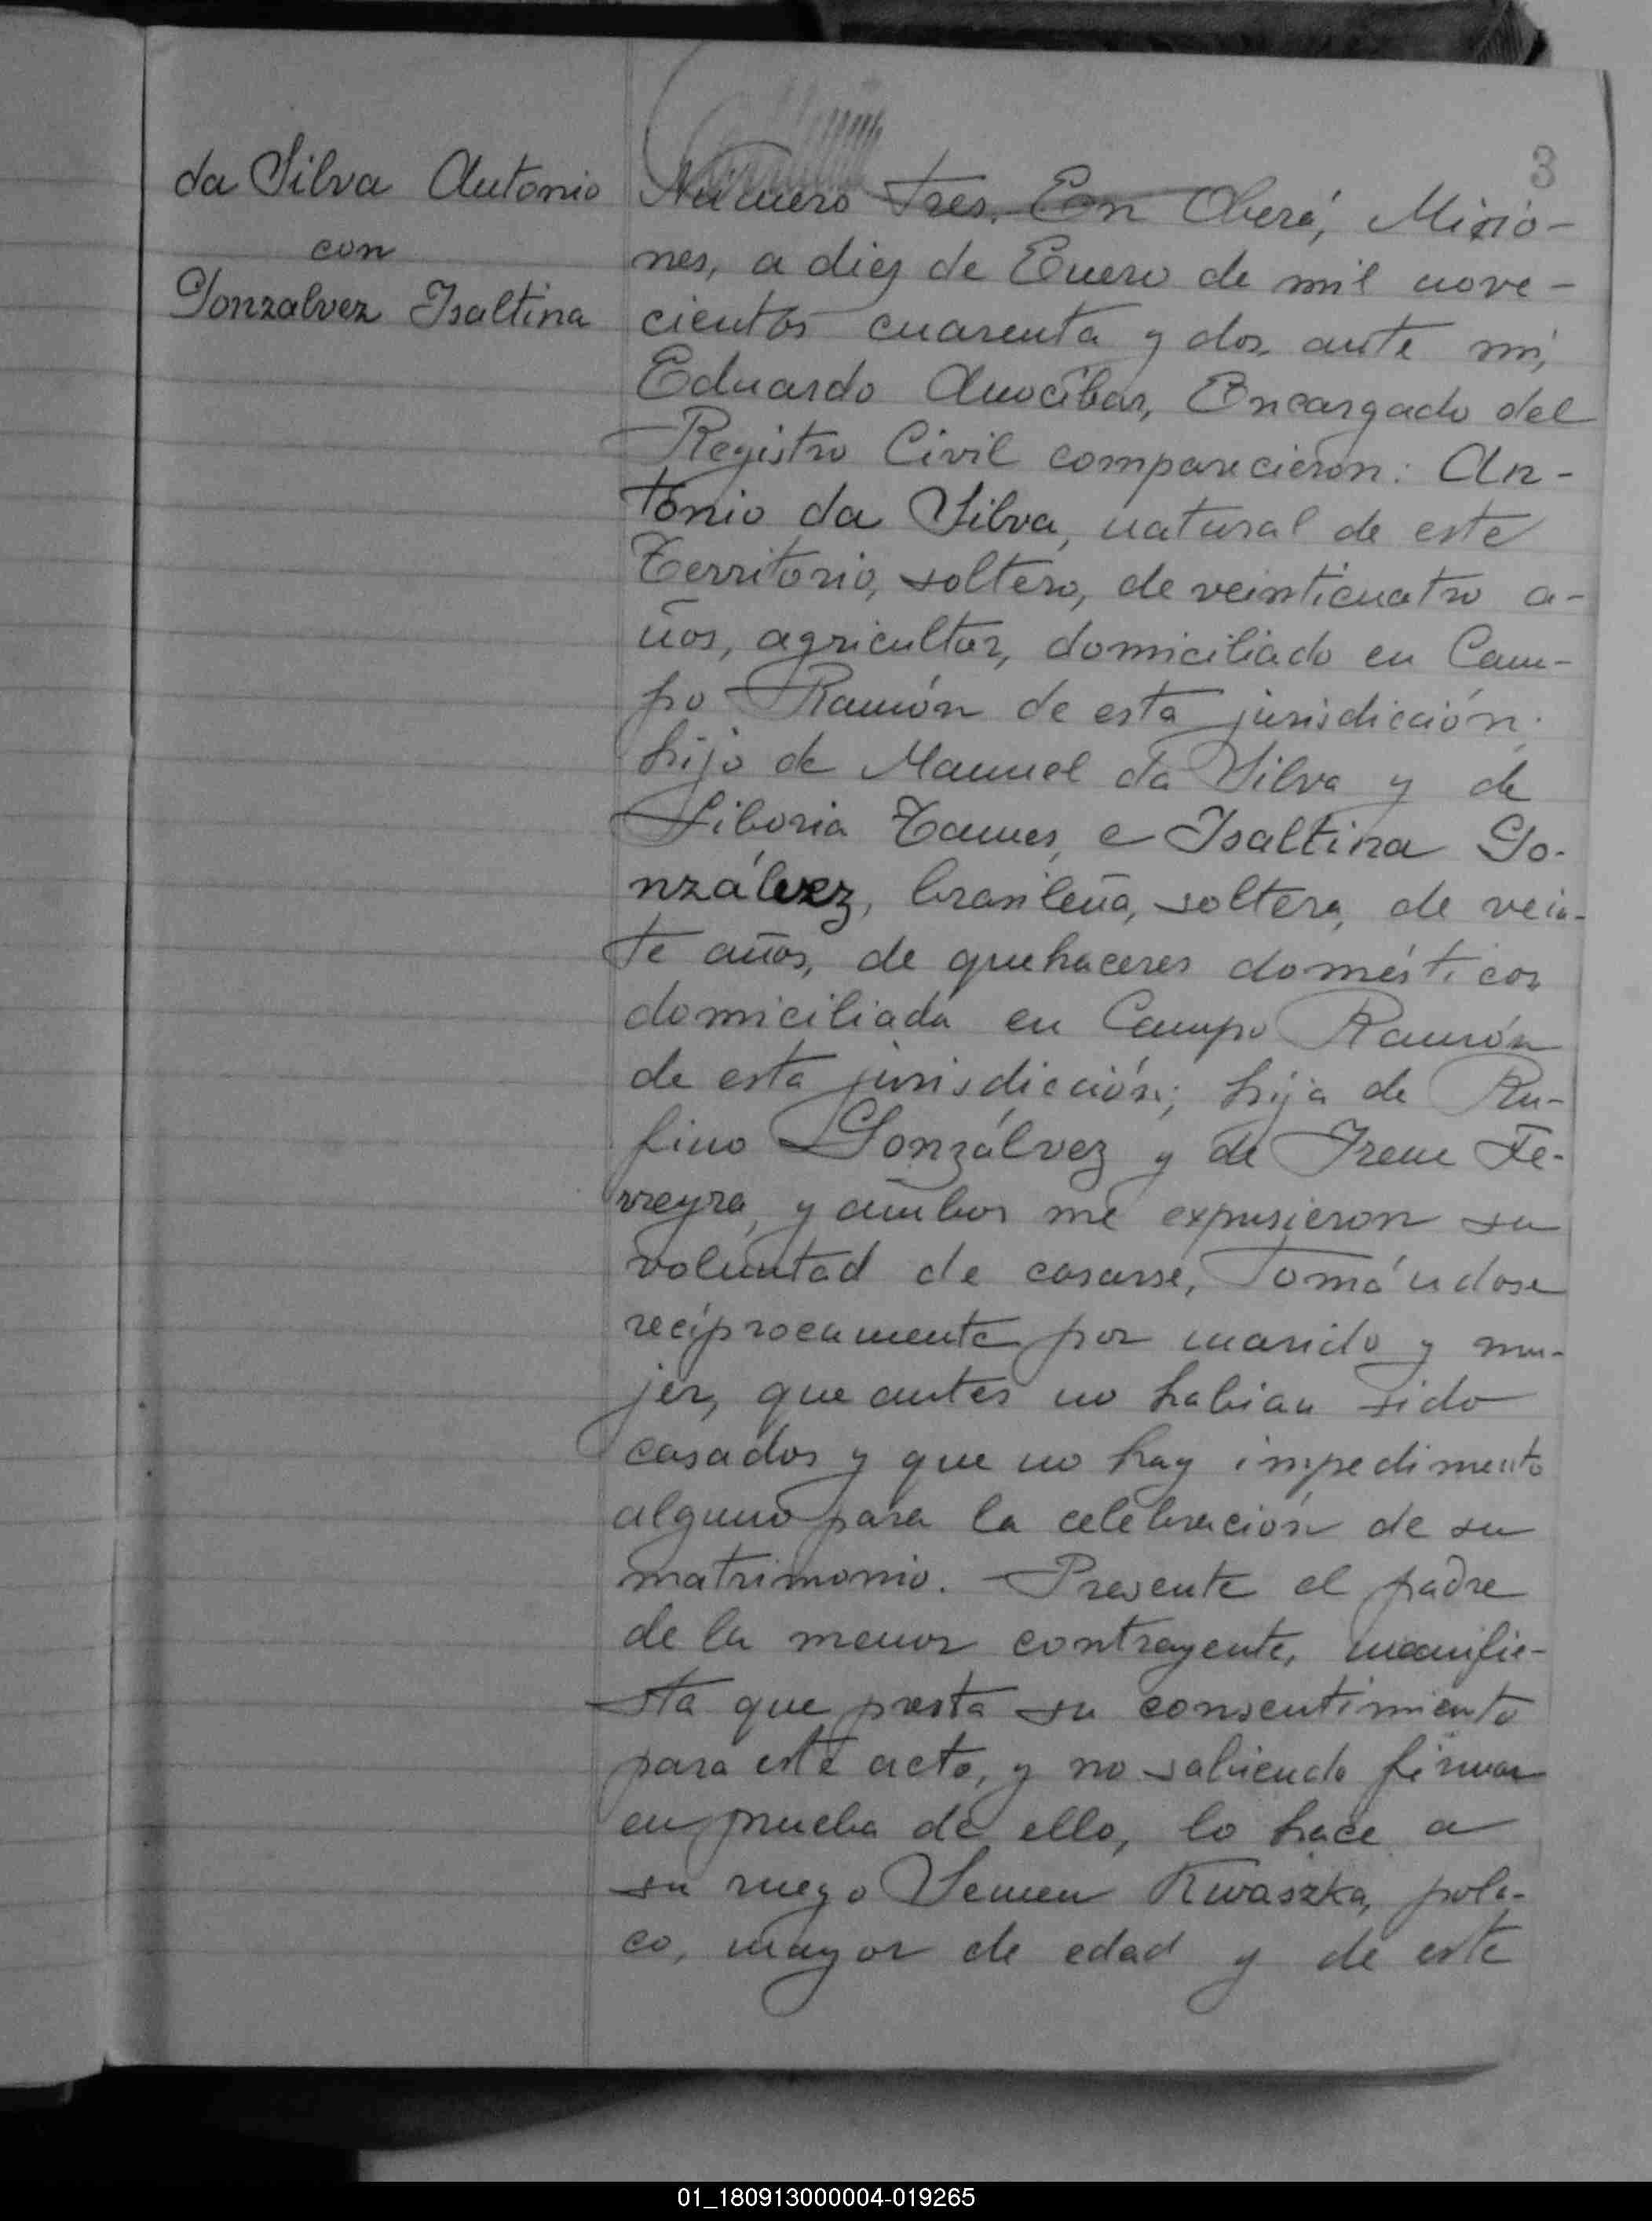 3
da Silva Antonio
con
Gonzalvez Isaltina
Número tres. En Oberá, Misio-
nes, a diez de Enero de mil nove-
cientos cuarenta y dos, ante mí,
Eduardo Anocíbar, Encargado del
Registro Civil comparecieron: An-
tonio da Silva, natural de este
Territorio, soltero, de veinticuatro a-
ños, agricultor, domiciliado en Cam-
po Ramón de esta jurisdicción;
hijo de Manuel da Silva y de
Liboria Tames, e Isaltina Go-
nzálvez, brasileña, soltera, de vein-
te años, de quehaceres domésticos
domiciliada en Campo Ramón
de esta jurisdicción; hija de Ru-
fino Gonzálvez y de Irene Fe-
rreyra, y ambos me expusieron su
voluntad de casarse, tomándose
recíprocamente por marido y mu-
jer, que antes no habian sido
casados y que no hay impedimento
alguno para la celebración de su
matrimonio. Presente el padre
de la menor contrayente, manifie-
sta que presta su consentimiento
para este acto, y no sabiendo firmar
en prueba de ello, lo hace a
su ruego Semen Kwaszka, pola-
co, mayor de edad y de este
01_180913000004-019265